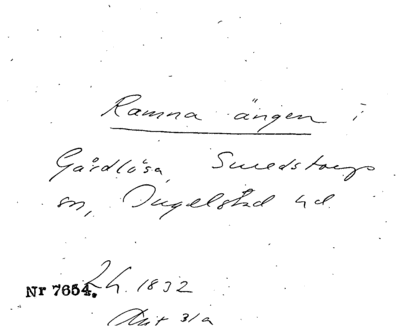 Ramna ängen i
Gårdlösa, Smedstorps
sn, Ingelstad hd
Nr 7654. Lh. 1832
Akt 31a